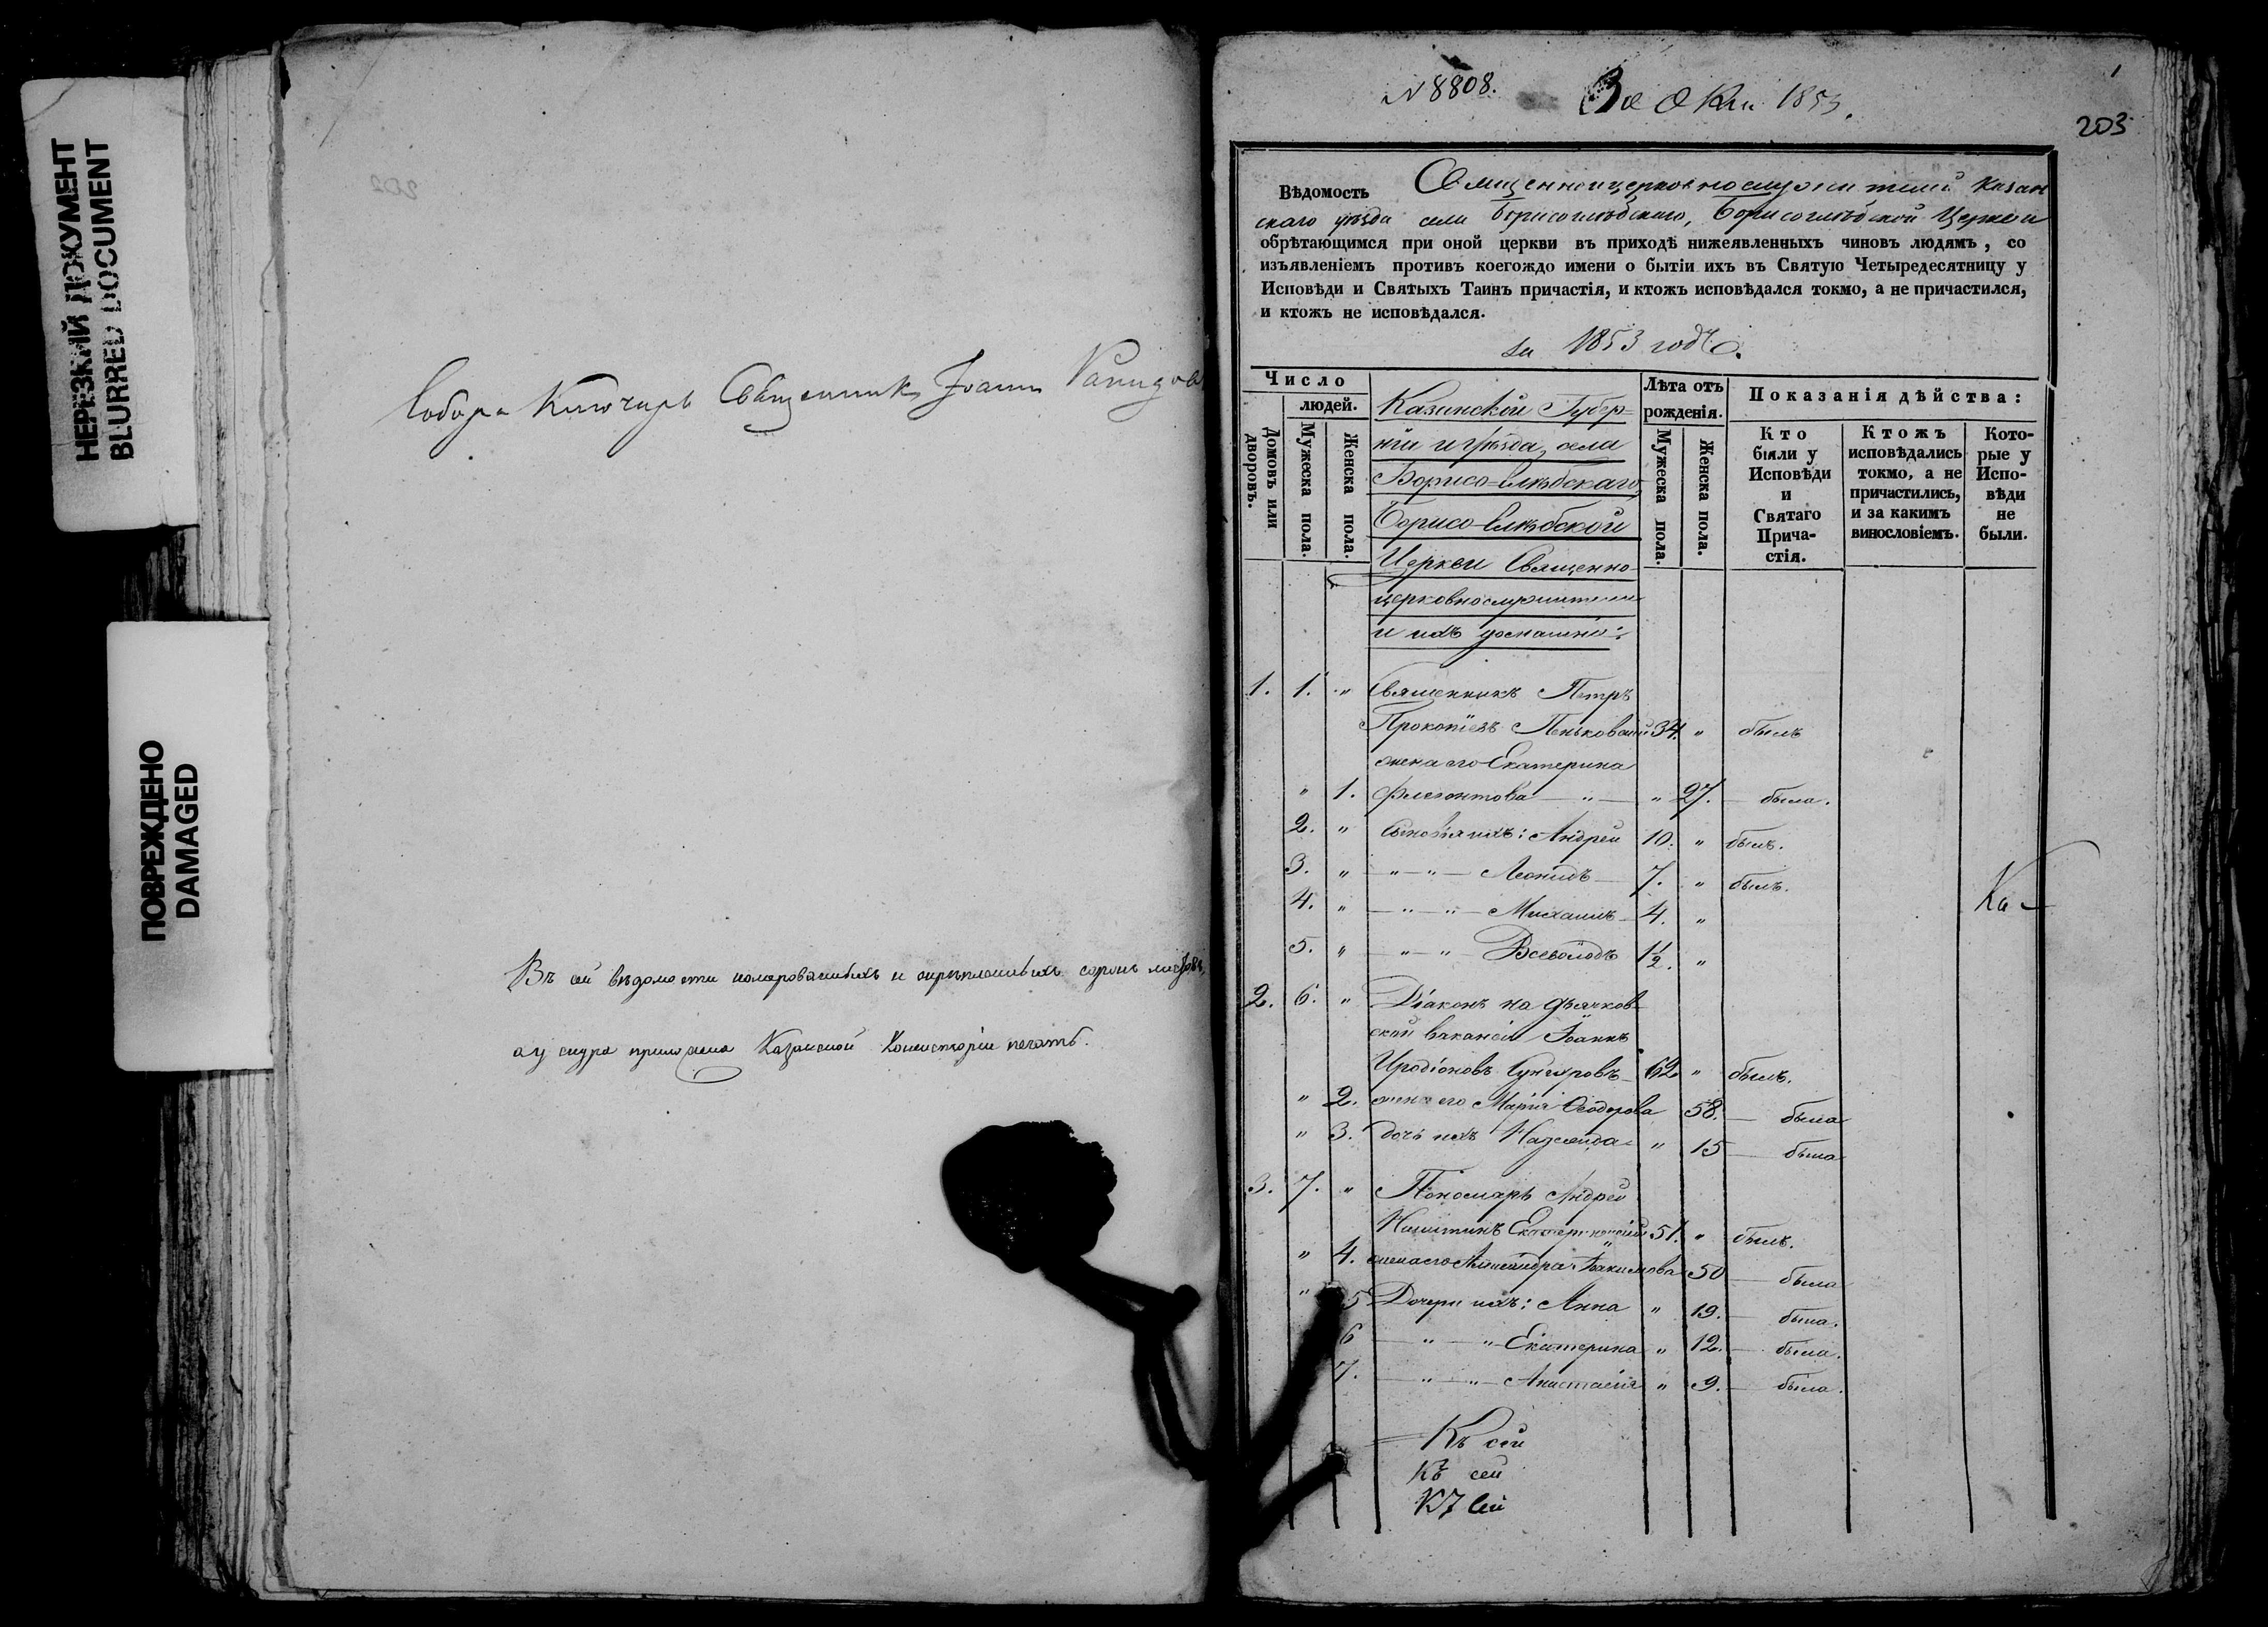 НЕРЕЗКИЙ ДОКУМЕНТ
BLURRED DOCUMENT
ПОВРЕЖДЕНО
DAMAGED
Собора Ключарь Священникъ Іоаннъ
Въ сей вѣдомости нумерованныхъ и скрѣпленныхъ сорокъ листовъ,
а у снура приложена Казанской Консисторіи печать.
N 8808.
1853.
203
Вѣдомость Священноицерковнослужителей Казан
скаго уѣзда села Борисоглѣбскаго, Борисоглѣбской Церкви
обрѣтающимся при оной церкви въ приходѣ нижеявленныхъ чиновъ людямъ, со
изъявленіемъ противъ коегождо имени о бытіи ихъ въ Святую Четыредесятницу у
Исповѣди и Святыхъ Таинъ причастія, и ктожъ исповѣдался токмо, а не причастился,
и ктожъ не исповѣдался.
за 1853 годъ.
Число людей.
Домовъ или дворовъ.
Мужеска пола.
Женска пола.
Казанской Губер=
ніи и уѣзда, села
Борисо=Глѣбскаго,
Борисо-Глѣбской
Церкви Священно-
церковнослужители
и ихъ домашніе:
Лѣта отъ рожденія.
Мужеска пола.
Женска пола.
Показанія дѣйства:
Кто были у Исповѣди и Святаго Прича-стія.
Ктожъ исповѣдались токмо, а не причастились, и за какимъ винословіемъ.
Кото-рые у Испо-вѣди не были.
1. 1. " Священникъ Петръ
Прокопіевъ Пеньковскій 34. " былъ
жена его Екатерина
" 1. Флегонтова — " — " 27. — была.
2. " Сыновья ихъ: Андрей 10. " былъ.
3. " " — " — Леонидъ 7. " былъ.
4. " — " — " — Михаилъ 4. "
Ка-
5. " " — " Всеволодъ 1½. "
2. 6. " Діаконъ на дьячков
ской вакансіи Іоаннъ
Иродіоновъ 62 " былъ.
" 2. жена его Марія Ѳеодорова 58. — была
" 3. дочь ихъ Надежда " 15 — была
3. 7. " Пономарь Андрей
Никитинъ 51. " былъ.
" 4. жена его Александра Іоакимова 50 — была
" 5 Дочери ихъ: Анна " 19. — была.
6 — " — " Екатерина " 12. — была.
7. — " — " — Анастасія " 9. — была.
Къ сей
Къ сей
Къ сей